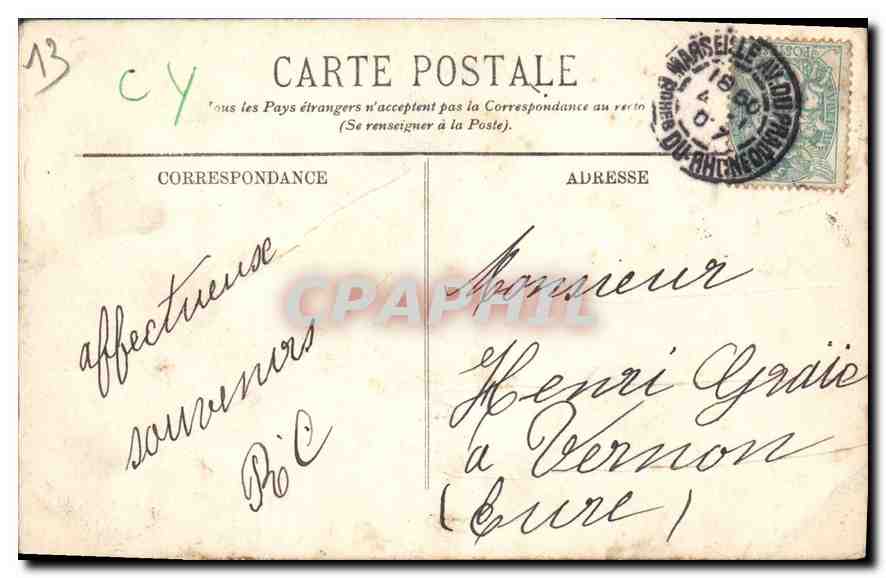 13
CY
CARTE POSTALE
Tous les Pays étrangers n'acceptent pas la Correspondance au recto
(Se renseigner à la Poste).
CORRESPONDANCE
ADRESSE
MARSEILLE AV. DU PRADO
18
4
07
BOUCHES DU-RHÔNE
affectueux
souvenirs
Monsieur
Henri Graïe
a Vernon
(Eure)
CPAPHIL